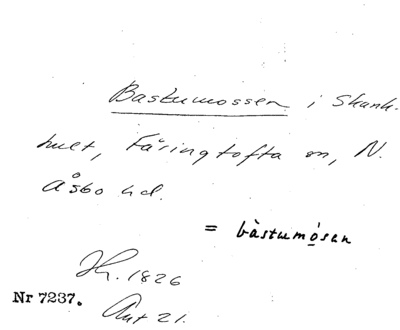 Bastumossen i Skank-
hult, Färingtofta sn, N.
Åsbo hd.
= bàstumósan
Hr. 1826
Nr 7237. Ant 21.